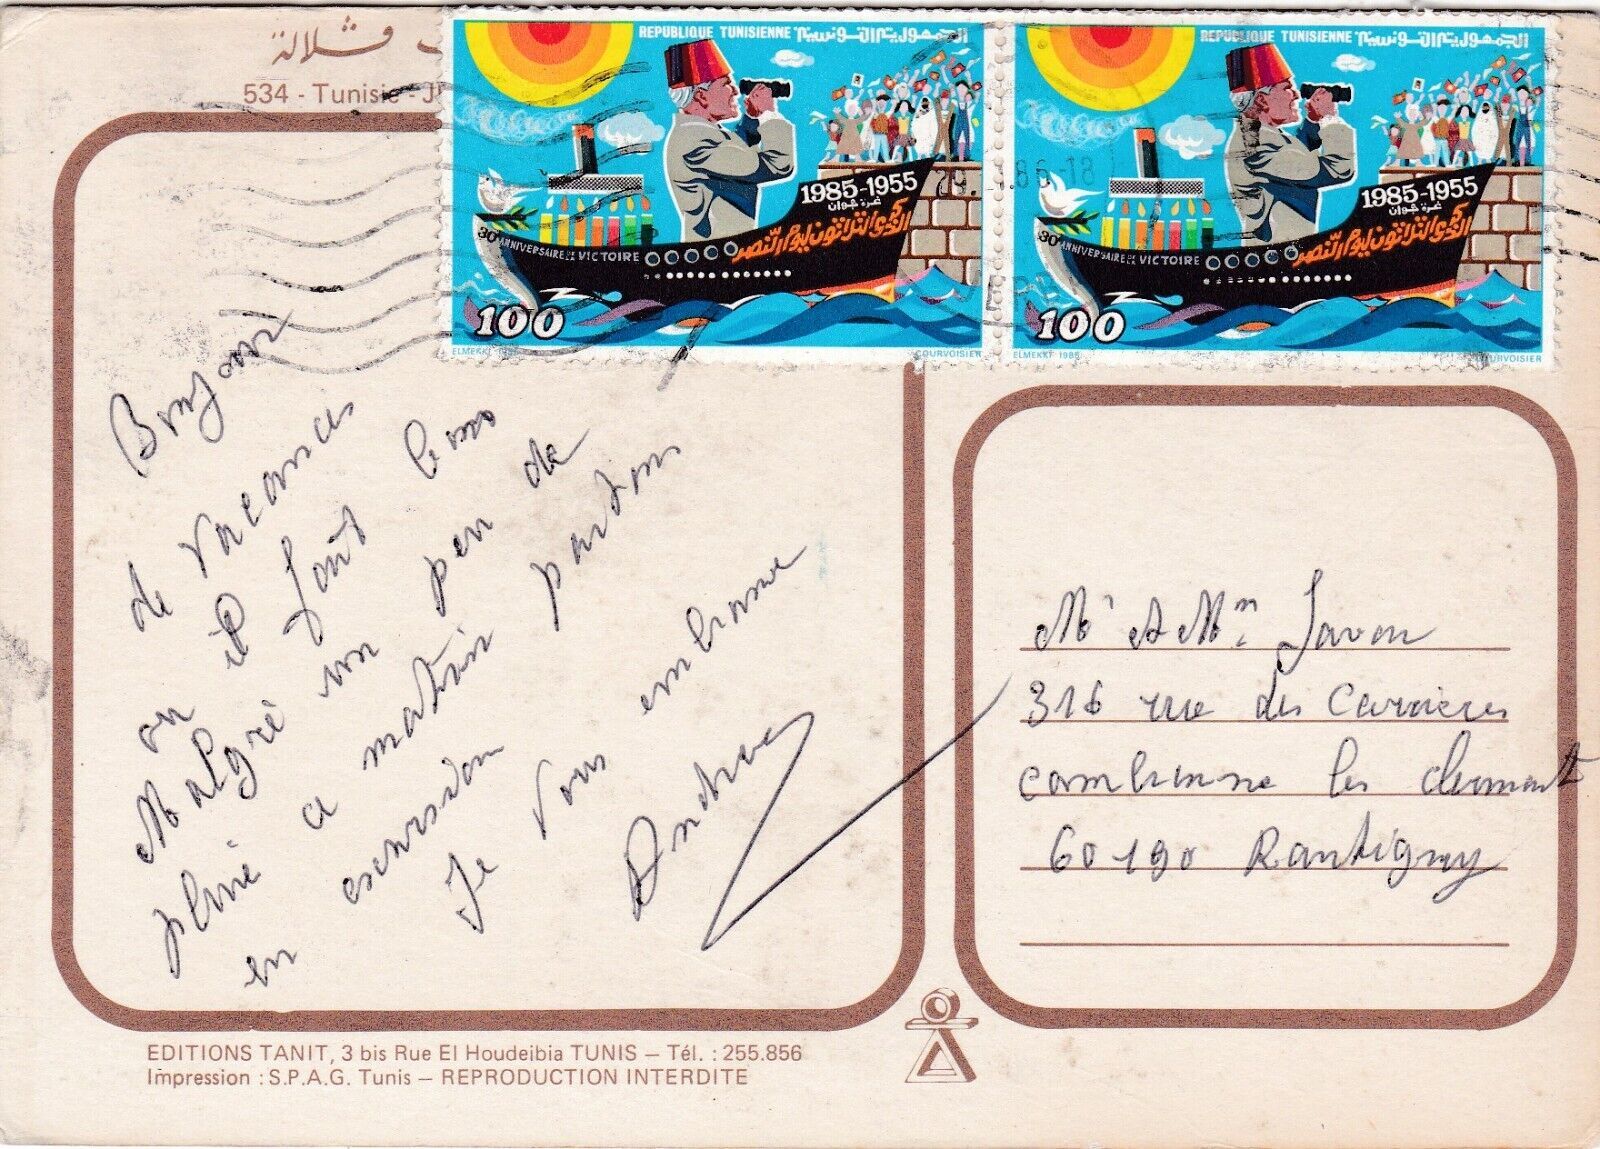 قلالة
534 - Tunisie - J
REPUBLIQUE TUNISIENNE الجمهورية التونسية
1985-1955
غرة جوان
الذكرى الثلاثون ليوم النصر
30e ANNIVERSAIRE DE LA VICTOIRE
100
ELMEKKI 1985 COURVOISIER
REPUBLIQUE TUNISIENNE الجمهورية التونسية
1985-1955
غرة جوان
الذكرى الثلاثون ليوم النصر
30e ANNIVERSAIRE DE LA VICTOIRE
100
ELMEKKI 1985 COURVOISIER
86-18
Bonjour
de vacances
ou il fait bon
Malgré un peu de
pluie a matin partons
en excursion
Je vous embrasse
Andrée
Mr et Mm Javon
316 rue des Carrieres
cambronne les clermont
60190 Rantigny
EDITIONS TANIT, 3 bis Rue El Houdeibia TUNIS – Tél. : 255.856
Impression : S.P.A.G. Tunis – REPRODUCTION INTERDITE